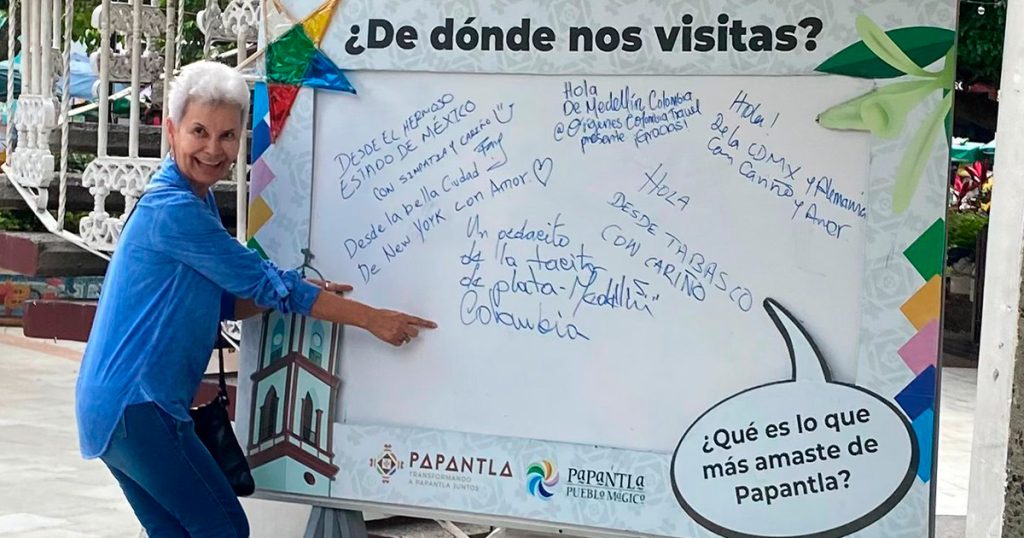 ¿De dónde nos visitas?
DESDE EL HERMOSO
ESTADO DE MÉXICO
CON SIMPATIA Y CARIÑO
Desde la bella Ciudad
De New York con Amor.
Hola
De Medellín Colombia
@Origenes Colombia Travel
presente
Hola!
De la CDMX y Alemania
Con Cariño y Amor
HOLA
DESDE TABASCO
CON CARIÑO
Un pedacito
de "la tacita
de plata-Medellín"
Colombia
PAPANTLA
TRANSFORMANDO
A PAPANTLA JUNTOS
PAPANTLA
PUEBLO MÁGICO
¿Qué es lo que
más amaste de
Papantla?